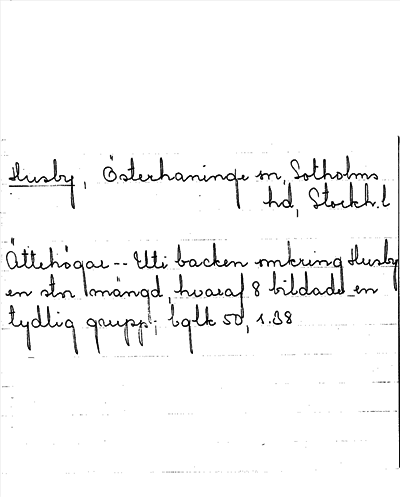 Husby, Österhaninge sn, Sotholms
hd, Stockh.l
Ättehögar -- Uti backen omkring Husby
en stor mängd, hvaraf 8 bildade en
tydlig grupp; bglk 50, s.38